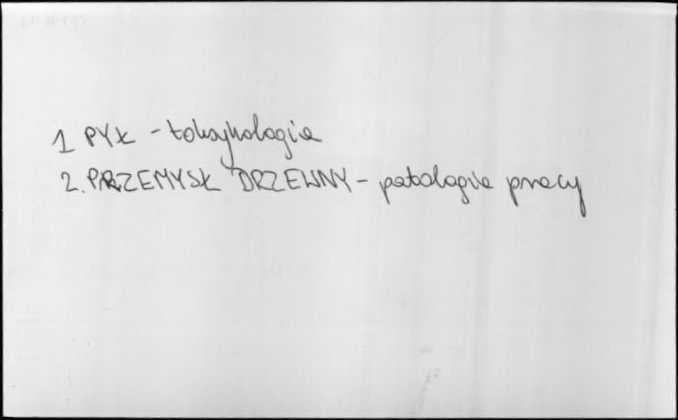 1 PYŁ - toksykologia
2. PRZEMYSŁ DRZEWNY - patologia pracy